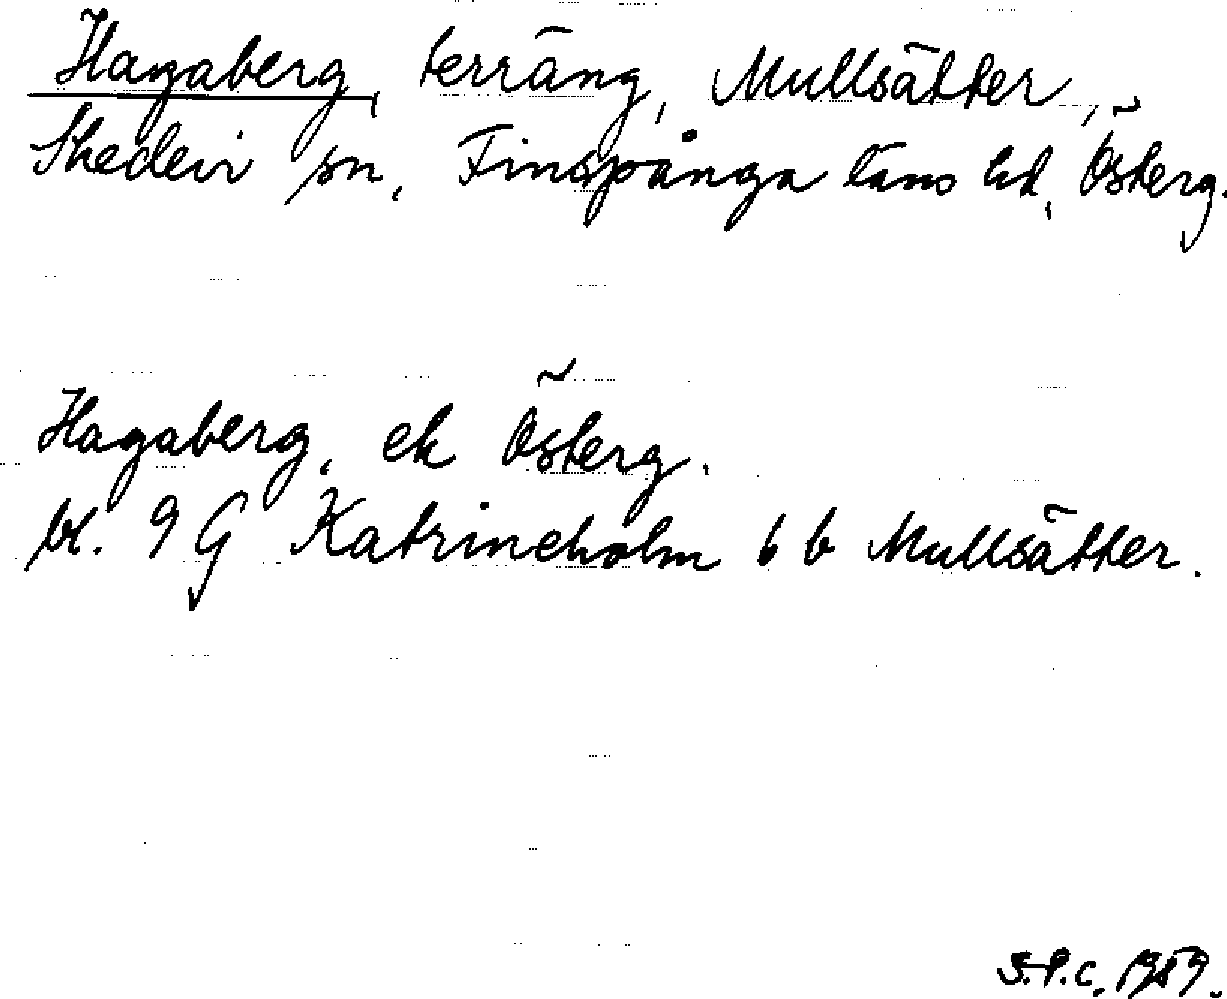 Hagaberg, terräng, Mullsätter,
Skedevi sn, Finspånga läns hd, Österg.
Hagaberg, ek Österg.
bl. 9 G Katrineholm 6 b Mullsätter.
S.P.C. 1989.